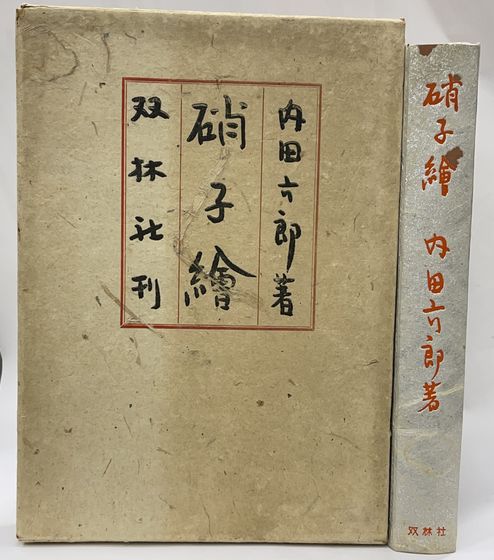 内田六郎著
硝子繪
双林社刊
硝子繪 内田六郎著
双林社